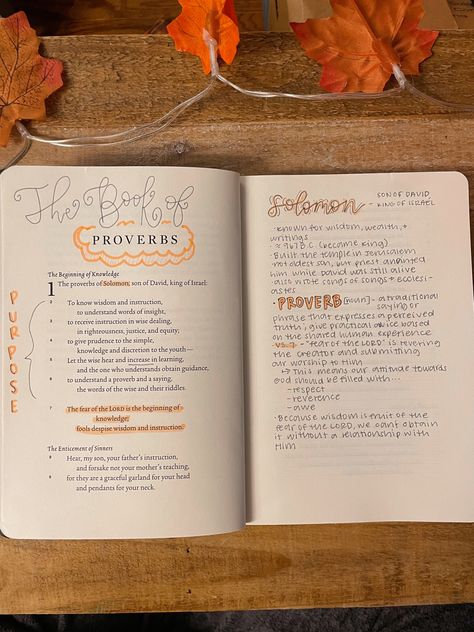 The Book of
PROVERBS
PURPOSE
The Beginning of Knowledge
1 The proverbs of Solomon, son of David, king of Israel:
2 To know wisdom and instruction,
to understand words of insight,
3 to receive instruction in wise dealing,
in righteousness, justice, and equity;
4 to give prudence to the simple,
knowledge and discretion to the youth—
5 Let the wise hear and increase in learning,
and the one who understands obtain guidance,
6 to understand a proverb and a saying,
the words of the wise and their riddles.
7 The fear of the LORD is the beginning of
knowledge;
fools despise wisdom and instruction.
The Enticement of Sinners
8 Hear, my son, your father's instruction,
and forsake not your mother's teaching,
9 for they are a graceful garland for your head
and pendants for your neck.
Solomon - SON OF DAVID,
KING OF ISRAEL
· known for wisdom, wealth, +
writings
· ≈ 967 B.C. (became king)
· Built the temple in Jerusalem
· not oldest son, but priest anointed
him while david was still alive
· also wrote songs of songs + ecclesi-
astes
· PROVERB [noun] - a traditional
saying or
phrase that expresses a perceived
truth; give practical advice based
on the shared human experience
VS. 7 - "fear of the LORD" is revering
the creator and submitting
our worship to Him
↳ This means our attitude towards
God should be filled with...
- respect
- reverence
- awe
· Because wisdom is fruit of the
fear of the LORD, we cant obtain
it without a relationship with
Him